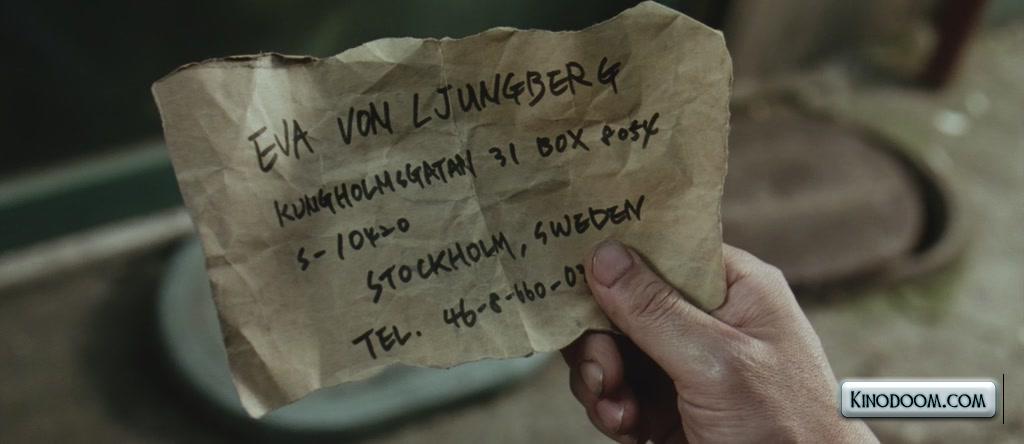 EVA VON LJUNGBERG
KUNGHOLMSGATAN 31 BOX 8054
S-10420
STOCKHOLM, SWEDEN
TEL. 46-8-660-07
KINODOOM.COM